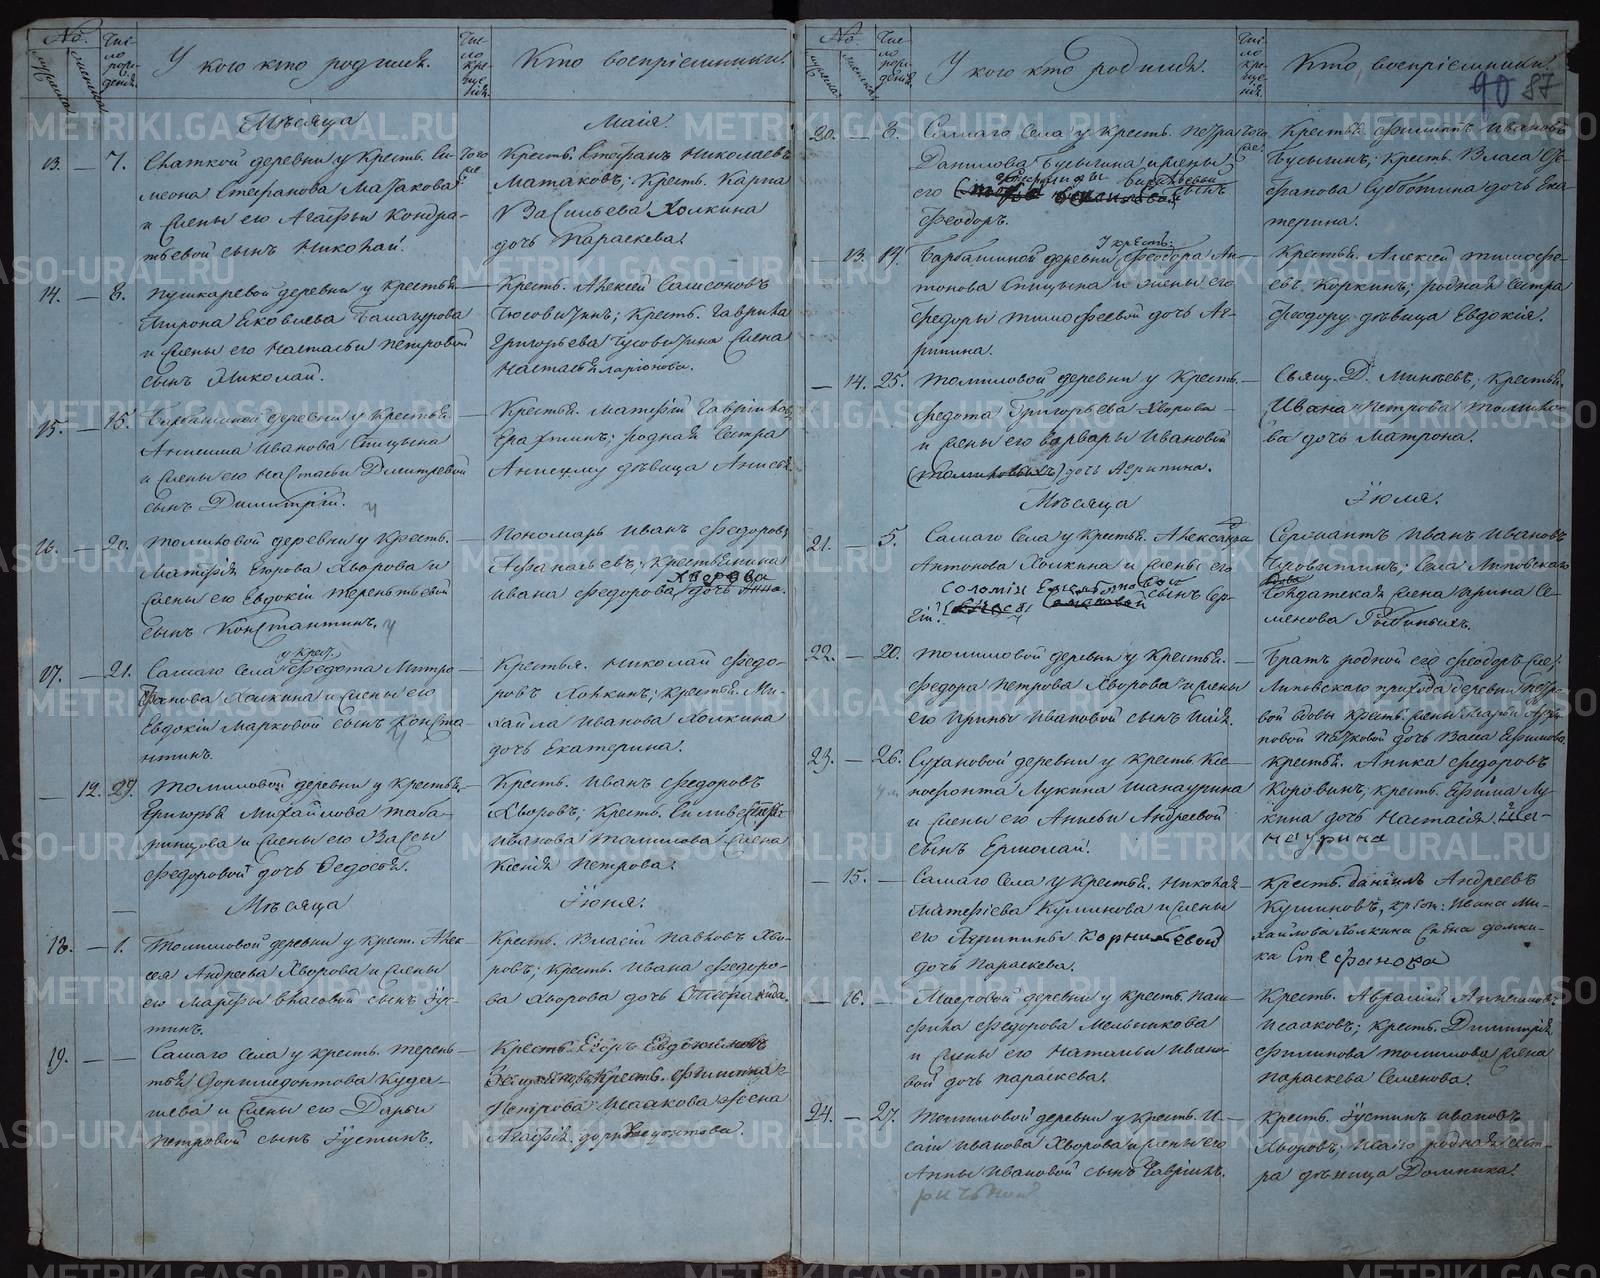 №.
мужеска
женска
Чис-
ло
рож-
денія.
У кого кто родился.
Чис-
ло
кре-
ще-
нія.
Кто воспріемники.
Мѣсяца
Маія.
13. — 7. Скаткой деревни у Крестья. Си-
меона Стефанова Матакова
и жены его Агафьи Кондра-
тьевой сынъ Николай.
Того
же
Крестья. Стефанъ Николаевъ
Матаковъ; Крестья. Карпа
Васильева Холкина
дочь Параскева.
14. — 8. Пушкаревой деревни у крестья.
Мирона Яковлева Балагурова
и жены его Настасьи Петровой
сынъ Николай.
Крестья. Алексей Самсоновъ
Чусовитинъ; Крестья. Гаврила
Григорьева Чусовитина жена
Настасья Ларіонова.
15. — 15. Барбашиной деревни у Крестья.
Анисима Иванова Спицына
и жены его Настасьи Дмитріевой
сынъ Димитрій.
Крестья. Матфій Гавриловъ
родная Сестра
Анисиму дѣвица Анисья.
16. — 20. Томиловой деревни у Крестья.
Матфія Егорова Хворова и
жены его Евдокіи Терентьевой
сынъ Константинъ.
Пономарь Иванъ Федоровъ
Афанасьевъ; Крестьянина
Ивана Федорова Хворова дочь Анна.
17. — 21. Самаго Села у Крес. Федота Митро-
фанова Холкина и жены его
Евдокіи Марковой сынъ Конста-
нтинъ.
Крестья. Николай Федо-
ровъ Холкинъ; крестья. Ми-
хайла Иванова Холкина
дочь Екатерина.
— 12. 29. Томиловой деревни у Крестья.
Григорья Михайлова Таба-
ринцова и жены его Вассы
Федоровой дочь Федосья.
Крестья. Иванъ Федоровъ
Хворовъ; Крестья. Сильвестра
Иванова Томилова жена
Ксенія Петрова.
Мѣсяца
Іюня.
18. — 1. Томиловой деревни у крест. Алек-
сея Андреева Хворова и жены
его Марфы Власовой сынъ Іус-
тинъ.
Крестья. Власій Павловъ Хво-
ровъ; Крестья. Ивана Федоро-
ва Хворова дочь Степанида.
19. — — Самаго Села у крестья. Терень-
тья Доримедонтова Куде-
шева и жены его Дарьи
Петровой сынъ Іустинъ.
Крестья. Егоръ Евдокимовъ
Крестья. Филиппа
Петрова Исаакова жена
Агафія Доримедонтова.
№.
мужеска
женска
Чис-
ло
рож-
денія
У кого кто родился.
Чис-
ло
кре-
ще-
нія.
Кто воспріемники.
90 87
20. — 8. Самаго Села у Крестья. Петра
Данилова Бусыгина и жены
его сынъ
Феодоръ.
Того
же
Крестья. Филиппъ Ивановъ
Бусыгинъ; Крестья. Власа Сте-
фанова Субботина дочь Ека-
терина.
— 13. 19. Барбашиной деревни у крестья. Федора Ан-
тонова Спицына и жены его
Федоры Тимофеевой дочь Аг-
рипина.
Крестья. Алексій Тимофе-
евъ Коркинъ; родная Сестра
Феодору дѣвица Евдокія.
— 14. 25. Томиловой деревни у Крестья.
Федота Григорьева Хворова
и жены его Варвары Ивановой
(Томиловыхъ) дочь Агрипина.
Свящ. Д. Минеевъ; крестья.
Ивана Петрова Томило-
ва дочь Матрона.
Мѣсяца
Іюля.
21. — 5. Самаго Села у Крестья. Александра
Антонова Холкина и жены его
Соломіи сынъ Сер-
гій.
Сержантъ Иванъ Ивановъ
Чусовитинъ; Села Липовскаго
вдова
Солдатская жена Ирина Се-
менова
22. — 20. Томиловой деревни у Крестья.
Федора Петрова Хворова и жены
его Ирины Ивановой сынъ Илія.
Братъ родной его Феодоръ же;
Липовскаго прихода деревни
вой вдовы Крестья. жены Марьи
повой дочь Васса Ефимова.
23. — 26. Сухановой деревни у Крестья. Кле-
носфонта Лукина Шанаурина
и жены его Анисьи Андреевой
сынъ Ермолай.
Крестья. Аника Федоровъ
Коровинъ; крестья. Ефима Лу-
кина дочь Настасія Ша-
наурина
— 15. — Самаго Села у Крестья. Николая
Матфіева Кушнова и жены
его Агрипины Корниловой
дочь Параскева.
Крестья. Даніилъ Андреевъ
Кушновъ, крест: Ивана Ми-
хайлова Холкина жена Домни-
ка Стефанова
— 16. — Маеровой деревни у крестья. Пам-
фила Федорова Мельникова
и жены его Натальи Ивано-
вой дочь Параскева.
Крестья. Аврамій
Исааковъ; крестья. Димитрія
Филипова Томилова жена
Параскева Семенова.
24. — 27. Томиловой деревни у крестья. И-
саіи Иванова Хворова и жены его
Анны Ивановой сынъ Гавріилъ.
Крестья. Іустинъ Ивановъ
Хворовъ; Исаію родная сест-
ра дѣвица Домника.
METRIKI.GASO-URAL.RU